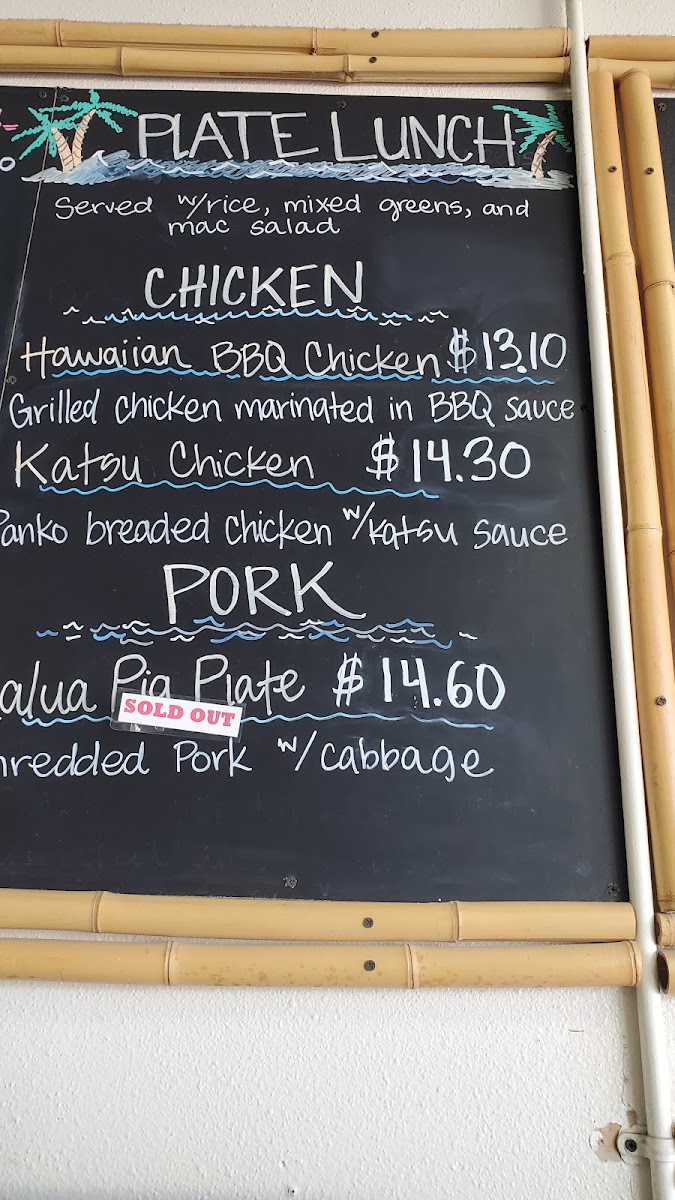 PLATE LUNCH
Served w/rice, mixed greens, and
mac salad
CHICKEN
Hawaiian BBQ Chicken $13.10
Grilled chicken marinated in BBQ sauce
Katsu Chicken $14.30
Panko breaded chicken w/katsu sauce
PORK
alua Pig Plate $14.60
SOLD OUT
hredded Pork w/cabbage